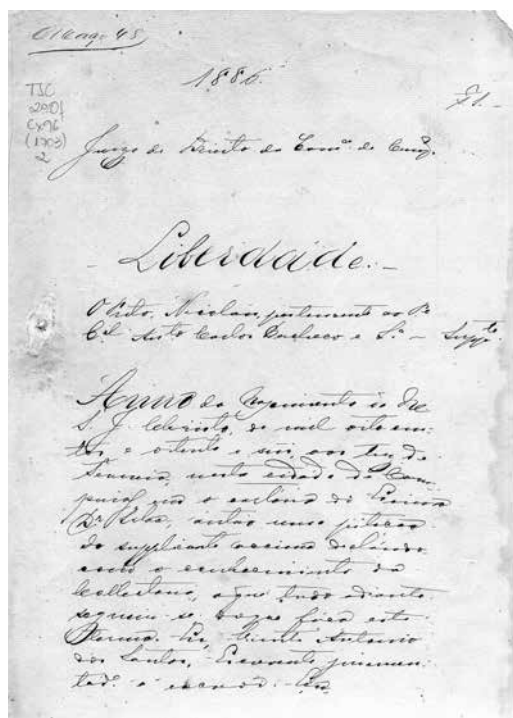 Março 45
1886.
71.-
TJC
2901
Cx 96
(1703)
2
Juizo de Direito da Comᶜᵃ de Campˢ.
- Liberdade. -
O Preto, Nicolau, pertencente ao Dʳ
Cᵉˡ Antº Carlos Pacheco e Sª - Suppᵗᵉ
Anno do Nascimento de Nº
S. J. Christo, de mil oitocen-
tos e oitenta e seis aos tres de
Fevereiro, nesta cidade de Cam-
pinas em o cartorio do Escrivão
Dr. Silva, autuo uma petição
do supplicante acima declarado
com o conhecimento da
Collectoria, o que tudo adiante
segue-se do que faço este
termo. Eu, Antonio
dos Santos, Escrevente juramen-
tado o escrevi. Eu